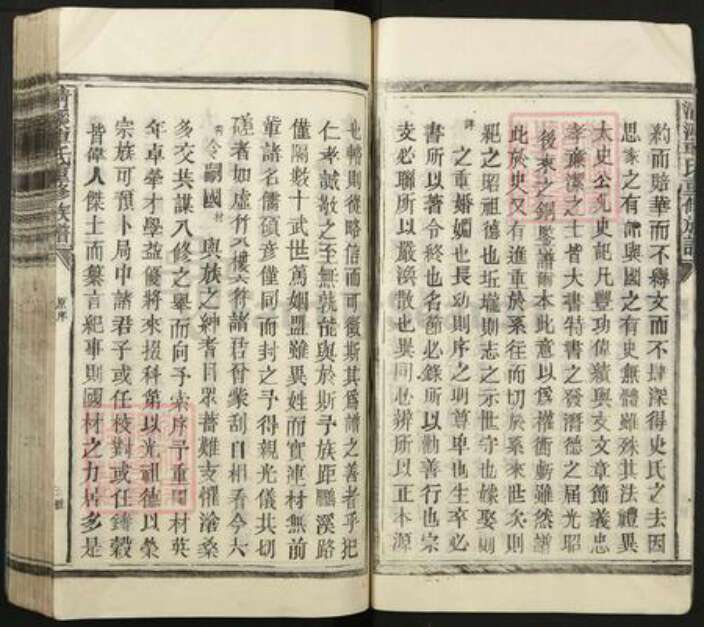 豹而賠華而不穢文而不肆深得史氏之去因
思家之有譜與國之有史無體雖殊其法禮異
太史公先史記凡豐功偉績與夫文章節義忠
孝廉潔之士皆大書特書之發潛德之届光昭
後來之銅鑒譜爾本此意以爲權衡斬雖然譜
此於史又有進重於系往而切於系來世次則
紀之昭祖德也坵壠則志之示世守也嫁娶則
詳之重婚媾也長幼則序之明尊卑也生卒必
書所以著令終也名節必錄所以勸善行也宗
支必聯所以嚴渙散也異同必辨所以正本源
也轄則從略信而可徵斯其爲譜之善者乎犯
仁孝誠敬之至無孰能與於斯予族距鵬溪路
僅隔數十武世萬姻盟雖異姓而實連材無前
輩諸名儒碩彥僅同而封之予得親光儀共切
磋者如虛竹八樓六符諸君晉蒙刮自相看今六
秀令嗣國材與族之紳耆目眾蕃難支懼滄桑
多交共謀八修之舉而向予索序予重國材英
年卓犖才學益優將來掇科第以光祖德以榮
宗族可預卜局中諸君子或任校對或任鑄穀
皆偉人傑士而纂言紀事則國材之力居多是
氏重修族譜
原序